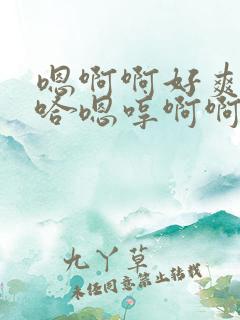 嗯啊啊好爽
哈嗯哼啊啊
九丫草
未经同意禁止转载